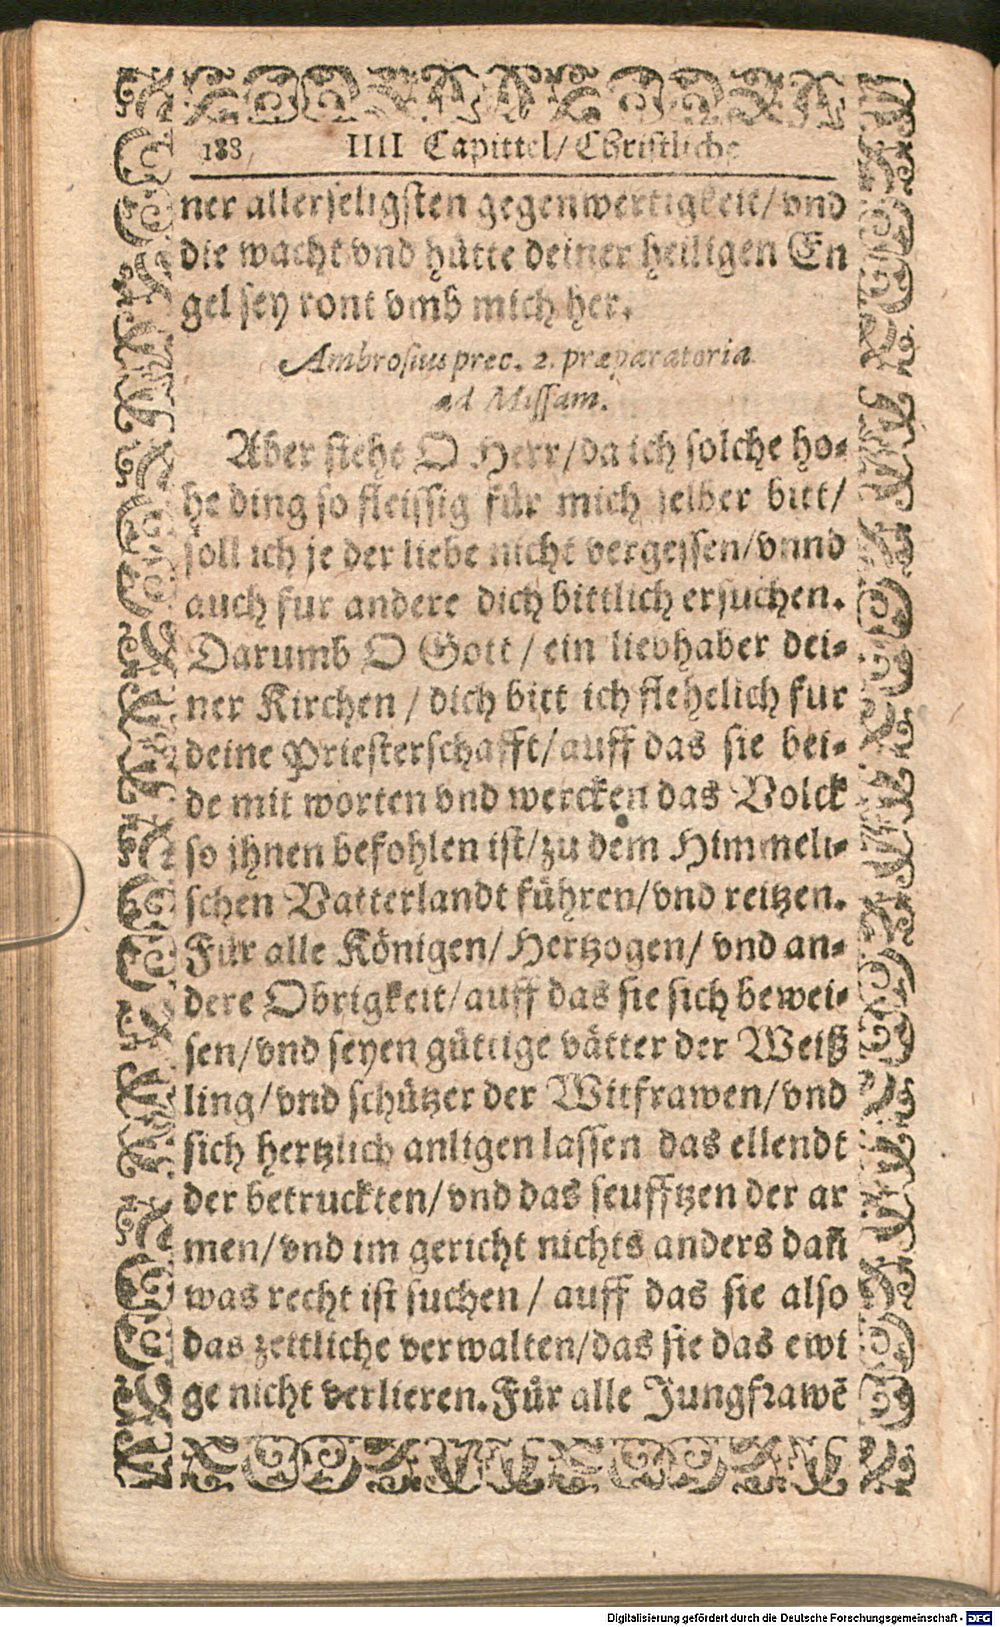 188 IIII Capittel/ Christliche
ner allerseligsten gegenwertigkeit/ vnd
die wacht vnd hütte deiner heiligen En
gel sey ront vmb mich her.
Ambrosius prec. 2. præparatoria
ad Missam.
Aber siehe O Herr/ da ich solche ho-
he ding so fleissig für mich selber bitt/
soll ich je der liebe nicht vergessen/ vnnd
auch fur andere dich bittlich ersuchen.
Darumb O Gott/ ein liebhaber dei-
ner Kirchen/ dich bitt ich flehelich fur
deine Priesterschafft/ auff das sie bei-
de mit worten vnd wercken das Volck
so jhnen befohlen ist/ zu dem Himmeli-
schen Vatterlandt führen/ vnd reitzen.
Für alle Königen/ Hertzogen/ vnd an-
dere Obrigkeit/ auff das sie sich bewei-
sen/ vnd seyen güttige vätter der Weiß
ling/ vnd schützer der Witfrawen/ vnd
sich hertzlich anligen lassen das ellendt
der betruckten/ vnd das seufftzen der ar
men/ vnd im gericht nichts anders dañ
was recht ist suchen/ auff das sie also
das zeitliche verwalten/ das sie das ewi
ge nicht verlieren. Für alle Jungfrawē
Digitalisierung gefördert durch die Deutsche Forschungsgemeinschaft - DFG